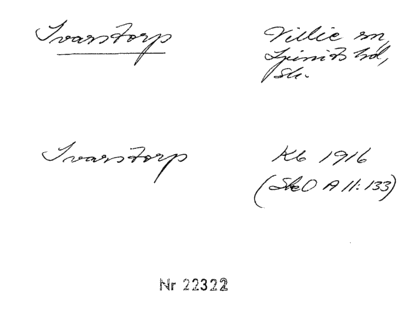 Ivarstorp
Villie sn,
Ljunits hd,
Sk.
Ivarstorp
Kb 1916
(SkO A 11:133)
Nr 22322